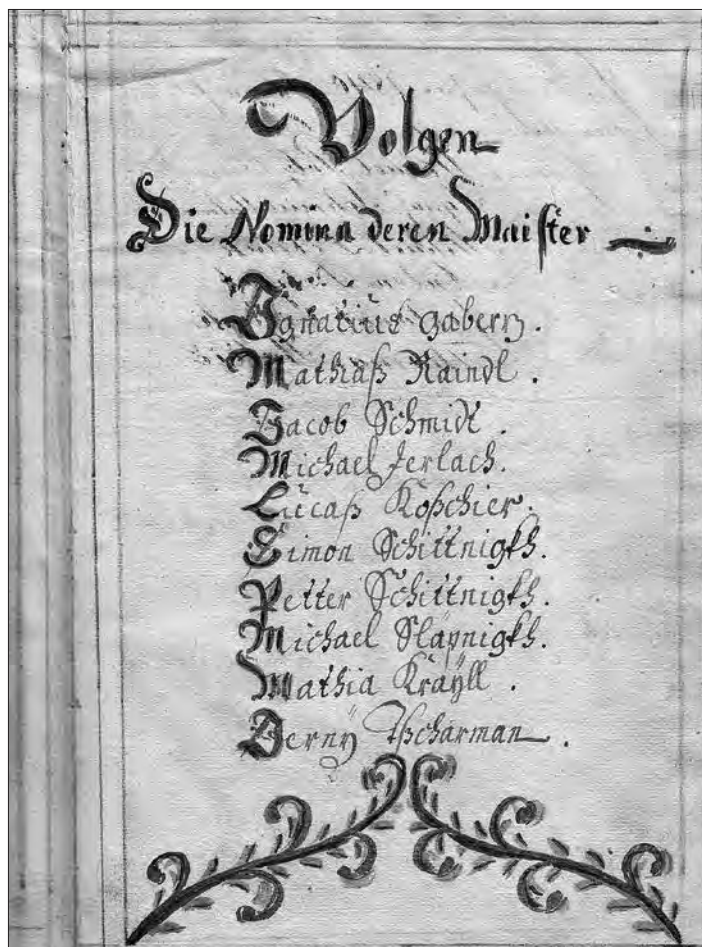 Volgen
Die Nomina deren Maister
Ignatius gaberz.
Mathiaß Raindl.
Jacob Schmidt.
Michael Jerlach.
Lucaß Koßchier.
Simon Schittnigkh.
Petter Schittnigkh.
Michael Slapnigkh.
Mathia Kraÿll.
Jernÿ Tscharman.